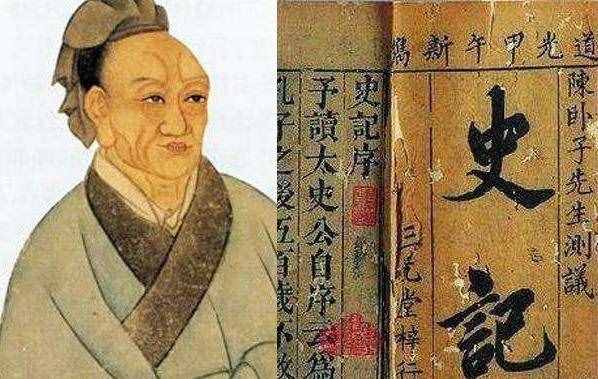 道光甲午新鐫
陳卧子先生測議
史記
三元堂梓行
史記序
予讀太史公自序云為
孔子之後五百歲不敢